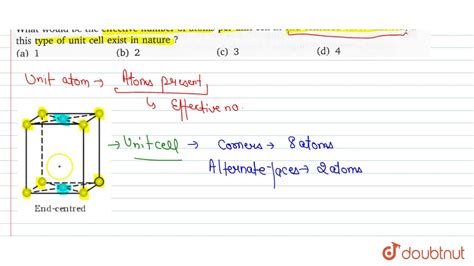 What would be the effective number of atoms per unit cell of
this type of unit cell exist in nature ?
(a) 1 (b) 2 (c) 3 (d) 4
Unit atom → Atoms present
↳ Effective no.
→ Unitcell → Corners → 8 atoms
Alternate-faces → 2 atoms
End-centred
doubtnut